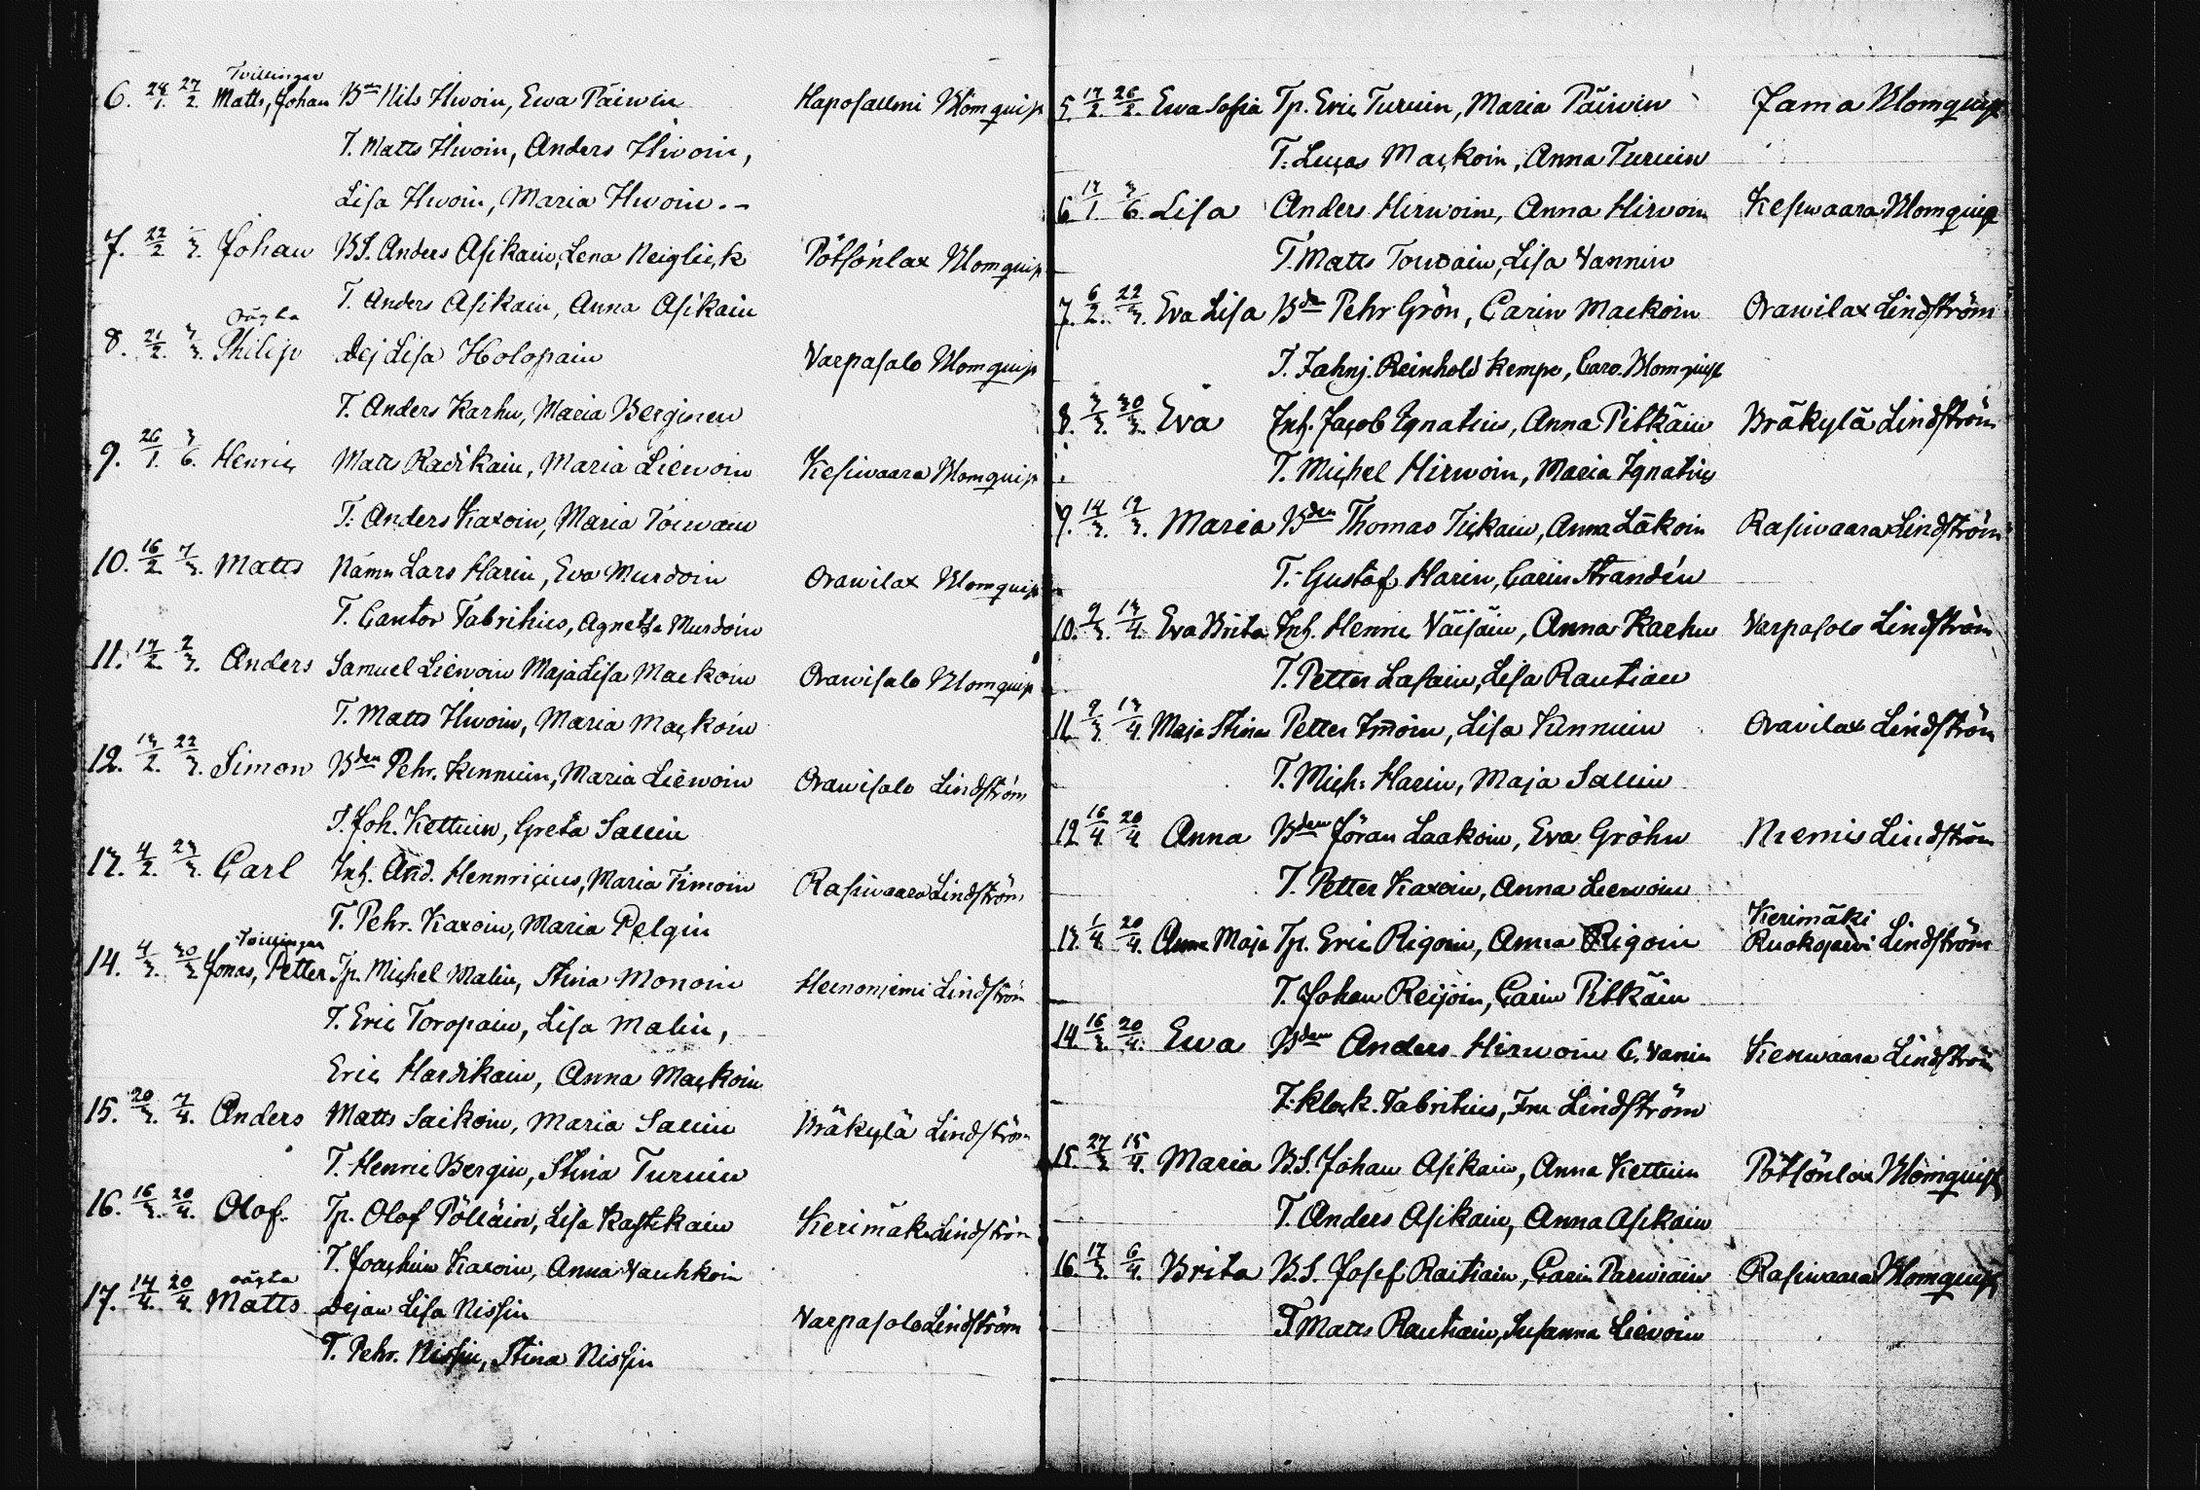 Tvillingar
6. 28/1. 27/2. Matts, Johan Bdn Nils Hivoin, Ewa Päiwin Haposallmi Blomquist
T. Matts Hivoin, Anders Hivoin,
Lisa Hivoin, Maria Hivoin.-
7. 22/2 1/3. Johan B.S. Anders Asikain, Lena Neiglick Pötsönlax Blomquist
T. Anders Asikain, Anna Asikain
oägta
8. 21/2. 3/3. Philip Dej Lisa Holopain Varpasalo Blomquist
T. Anders Karhu, Maria Berginen
9. 26/1. 3/6. Henric Matts Radikain, Maria Liewoin Kesiwaara Blomquist
T: Anders Kaxoin, Maria Toiwain
10. 16/2 7/3. Matts Nämn Lars Harin, Eva Murdoin Orawilax Blomquist
T. Cantor Fabritius, Agneta Murdoin
11. 17/2. 2/3. Anders Samuel Liewoin Maja Lisa Mackoin Orawisalo Blomquist
T. Matts Hivoin, Maria Mackoin
12. 13/2. 22/3. Simon Bden Pehr. Kinnuin, Maria Liewoin Orawisalo Lindström
T. Joh. Kettuin, Greta Sallin
13. 4/2. 23/3. Carl Inh. And. Hennricius, Maria Timoin Rasiwaara Lindström
T. Pehr. Kaxoin, Maria Pelgin
tvillingar
14. 4/3. 30/3 Jonas, Petter Tp. Michel Malin, Stina Monoin Heinoniemi Lindström
T. Eric Toropain, Lisa Malin,
Eric Hardikain, Anna Mackoin
15. 20/3. 7/4. Anders Matts Saikoin, Maria Sallin Bräkylä Lindström
T. Henric Bergin, Stina Turuin
16. 16/3. 20/4. Olof. Tp. Olof Pölläin, Lisa Kastikain Kerimäki Lindström
T. Joachim Kaxoin, Anna Vauhkoin
oägta
17. 14/4. 20/4. Matts Dejan Lisa Nissin Varpasalo Lindström
T. Pehr. Nissin, Stina Nissin
5. 17/2. 26/2. Ewa Sofia Tp. Eric Turuin, Maria Päiwin Jama Blomquist
T. Lucas Mackoin, Anna Turuin
6 17/1. 3/6. Lisa Anders Hirwoin, Anna Hirwoin Kesiwaara Blomquist
T. Matts Toiwain, Lisa Vannin
7. 6/2. 22/3. Eva Lisa Bdn Pehr Grön, Carin Mackoin Orawilax Lindström
T. Fahnj. Reinhold Kempe, Caro. Blomquist
8. 3/3. 30/3. Eva Inh. Jacob Ignatius, Anna Pitkäin Bräkylä Lindström
T. Michel Hirwoin, Maria Ignatius
9. 14/3. 12/3. Maria Bden Thomas Tickain, Anna Läkoin Rasiwaara Lindström
T. Gustaf Harin, Carin Strandin
10. 9/3. 13/4. Eva Brita Inh. Henric Väisäin, Anna Karhu Varpasolo Lindström
T. Petter Lasain, Lisa Rautiain
11. 9/3. 13/4. Maja Stina Petter Im̄oin, Lisa Kinnuin Oravilax Lindström
T. Mich: Harin, Maja Sallin
12 16/4 20/4 Anna Bden Jöran Laakoin, Eva Gröhn Niemis Lindström
T. Petter Kaxoin, Anna Liewoin
Kerimäki
13. 1/4. 20/4. Anna Maja Tp. Eric Rigoin, Anna Rigoin Ruokojarwi Lindström
T. Johan Reijoin, Carin Pitkäin
14. 16/3. 20/4. Ewa Bden Anders Hirwoin C. Vanin Kesiwaara Lindström
T. klock. Fabritius, Fru Lindström
15. 27/3 15/4. Maria B.S. Johan Asikain, Anna Kettuin Pötsönlax Blomquist
T. Anders Asikain, Anna Asikain
16. 17/3. 6/4. Brita B.S. Josef Rautiain, Carin Parwiain Rasiwaara Blomquist
T. Matts Rautiain, Susanna Liewoin